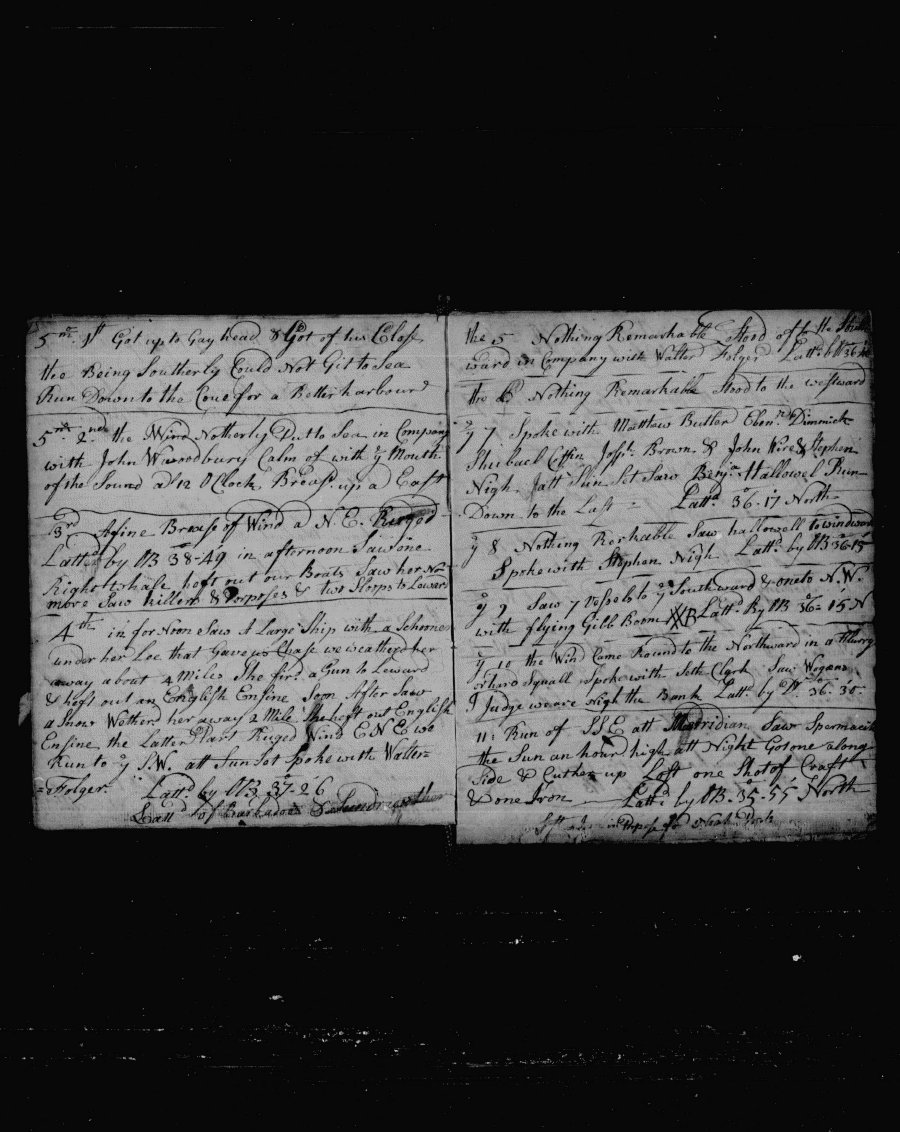 5 mo. 1st Got up to Gay head & Got of his Close
the Being Southerly Could Not Git to Sea
Run Down to the Cove for a Better harbour
5 mo. 2nd the Wind Notherly Put to Sea in Company
with John Woodbury Calm of with ye Mouth
of the Sound at 12 O Clock Breas. up a East
3rd A fine Brease of Wind a N.E. Ruged
Lattd by OB 38-49 in afternoon Saw one
Right whale heft out our Boats Saw her No
more Saw killers & Porposes & two Sloops to Leward
4th in for Noon Saw A Large Ship with a Schoner
under her Lee that Gave us Chase we weathered her
away about 4 Miles She fird a Gun to Leward
& heft out an English Ensine Soon After Saw
a Snow Wetherd her away 2 Mile She heft out English
Ensine the Latter Part Ruged Wind E N E we
Run to ye S.W. att Sun Sot Spoke with Walter
Folger. Lattd by OB 37-26
Lattd of
the 5 Nothing Remarkable Stood of to the
ward in Company with Walter Folger Lattd by OB 36
the 6 Nothing Remarkable Stood to the westward
ye 7 Spoke with Matthew Butler Eben. Dimmick
Shubael Coffin Josph. Brown & John Wire & Stephen
Nigh Jatt Shin Set Saw Benja. Hallowel Run
Down to the Last Lattd 36.17 North
ye 8 Nothing Reckable Saw hallowell to windward
Spoke with Stephen Nigh Lattd by OB 36-15
ye 9 Saw 7 Vessels to ye Southward & one to N.W.
with flying Gibb Boom Lattd By OB 36-15 N
ye 10 the Wind Came Round to the Northward in a flurry
or hard Squall Spoke with Seth Clark Saw
I Judge we are Nigh the Bank Lattd by 36.30
11: Run of SSE att Merridian Saw Spermacit
the Sun an hour high att Night Got one along
Side & Cut her up Lost one Shot of Craft
& one Iron Lattd by OB. 35-55 North